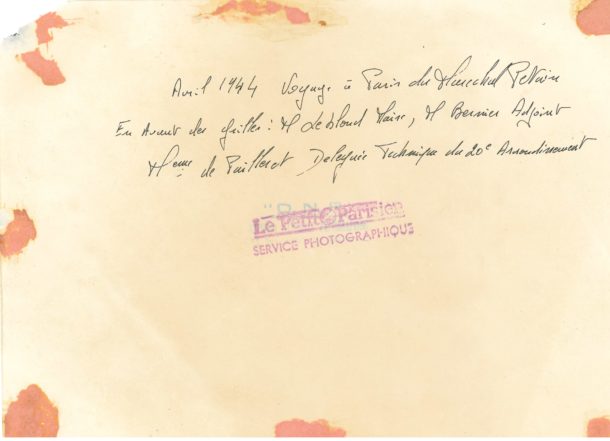 Avril 1944 Voyage à Paris du Maréchal Petain
En Avant des grilles : M Leblond Maire, M Bernier Adjoint
Meme de Pailleret Deleguée Technique du 20e Arrondissement
Le Petit Parisien
SERVICE PHOTOGRAPHIQUE